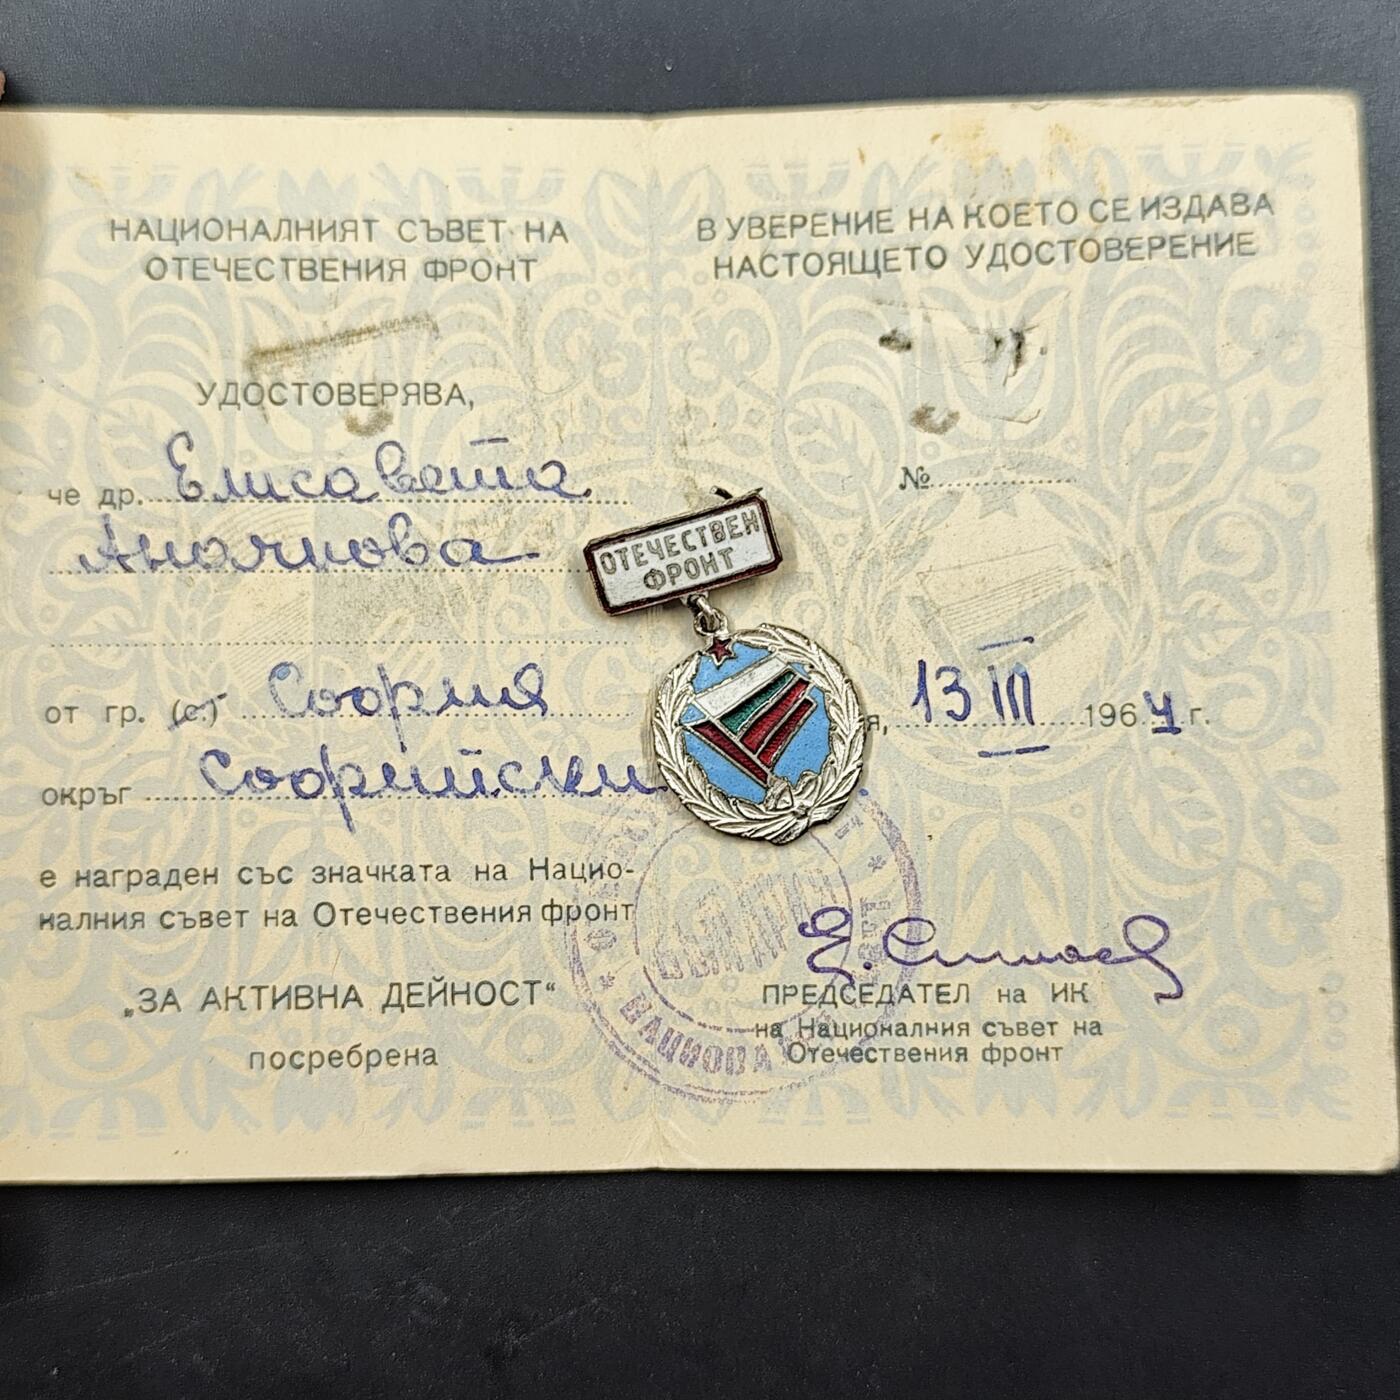 НАЦИОНАЛНИЯТ СЪВЕТ НА
ОТЕЧЕСТВЕНИЯ ФРОНТ
УДОСТОВЕРЯВА,
че др. Елисавета
от гр. (с.) София
окръг Софийски
е награден със значката на Нацио-
налния съвет на Отечествения фронт
„ЗА АКТИВНА ДЕЙНОСТ“
посребрена
ОТЕЧЕСТВЕН
ФРОНТ
В УВЕРЕНИЕ НА КОЕТО СЕ ИЗДАВА
НАСТОЯЩЕТО УДОСТОВЕРЕНИЕ
№
я, 13 III 1964 г.
ПРЕДСЕДАТЕЛ на ИК
на Националния съвет на
Отечествения фронт